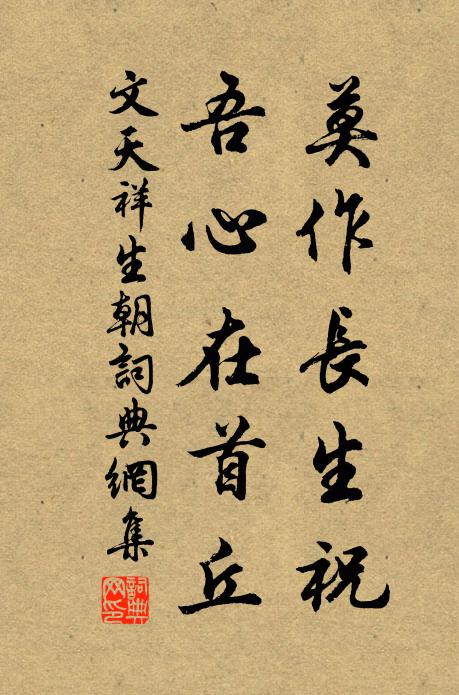 莫作長生祝
吾心在首丘
文天祥生朝詞典網集
詞典網印